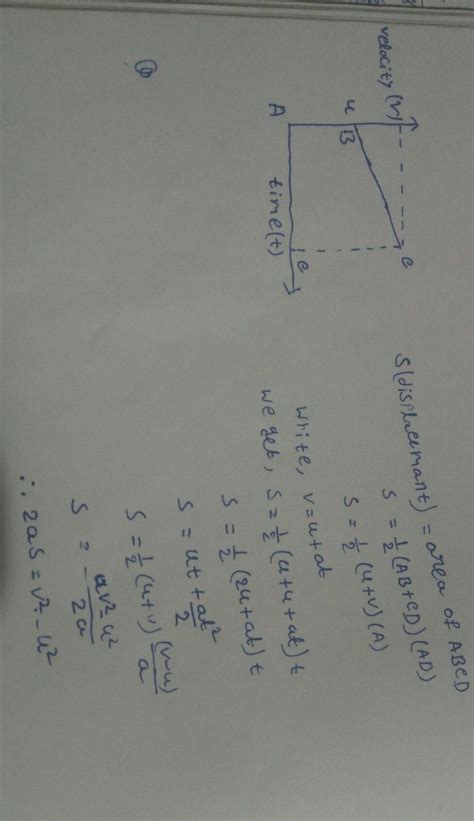 velocity (v)
u
B
c
A
time(t)
e
S(displacemant) = area of ABCD
S = 1/2 (AB+CD) (AD)
S = 1/2 (u+v) (A)
write, v=u+at
we get, S = 1/2 (u+u+at) t
S = 1/2 (2u+at) t
S = ut + at²/2
S = 1/2 (u+v) (v-u)/a
S = - uv²-u²/2a
∴ 2as = v²-u²